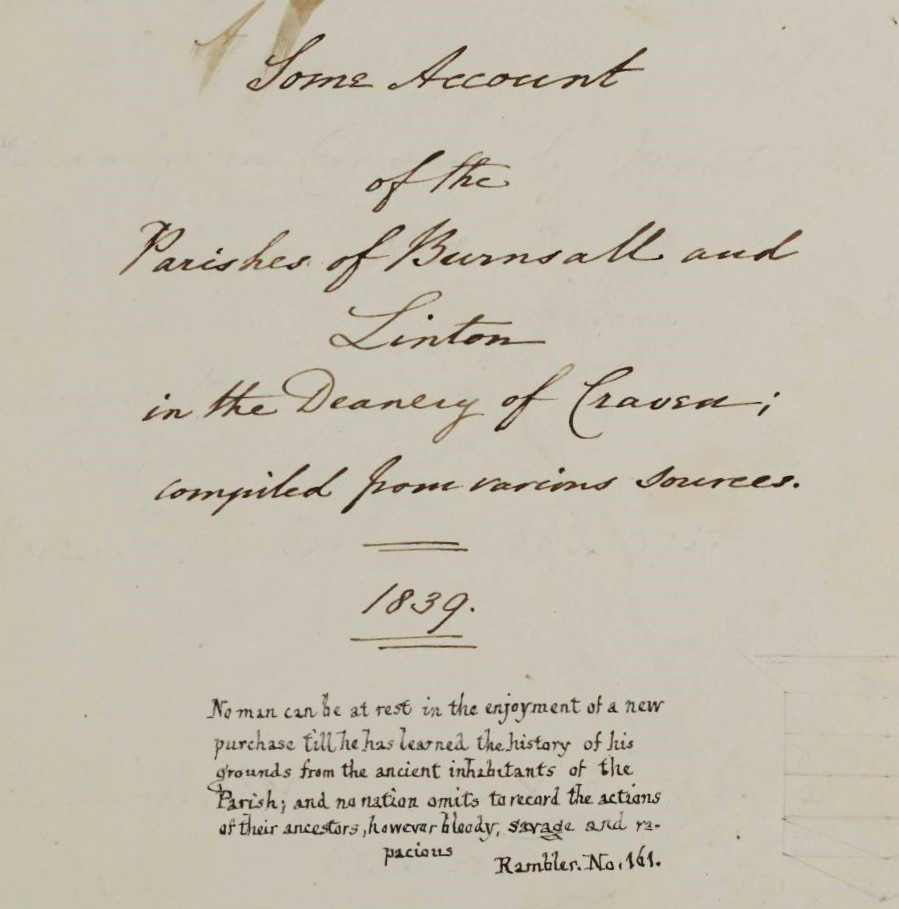 Some Account
of the
Parishes of Burnsall and
Linton
in the Deanery of Craven;
compiled from various sources.
1839.
No man can be at rest in the enjoyment of a new
purchase till he has learned the history of his
grounds from the ancient inhabitants of the
Parish; and no nation omits to record the actions
of their ancestors, however bloody, savage and ra-
pacious
Rambler. No. 161.